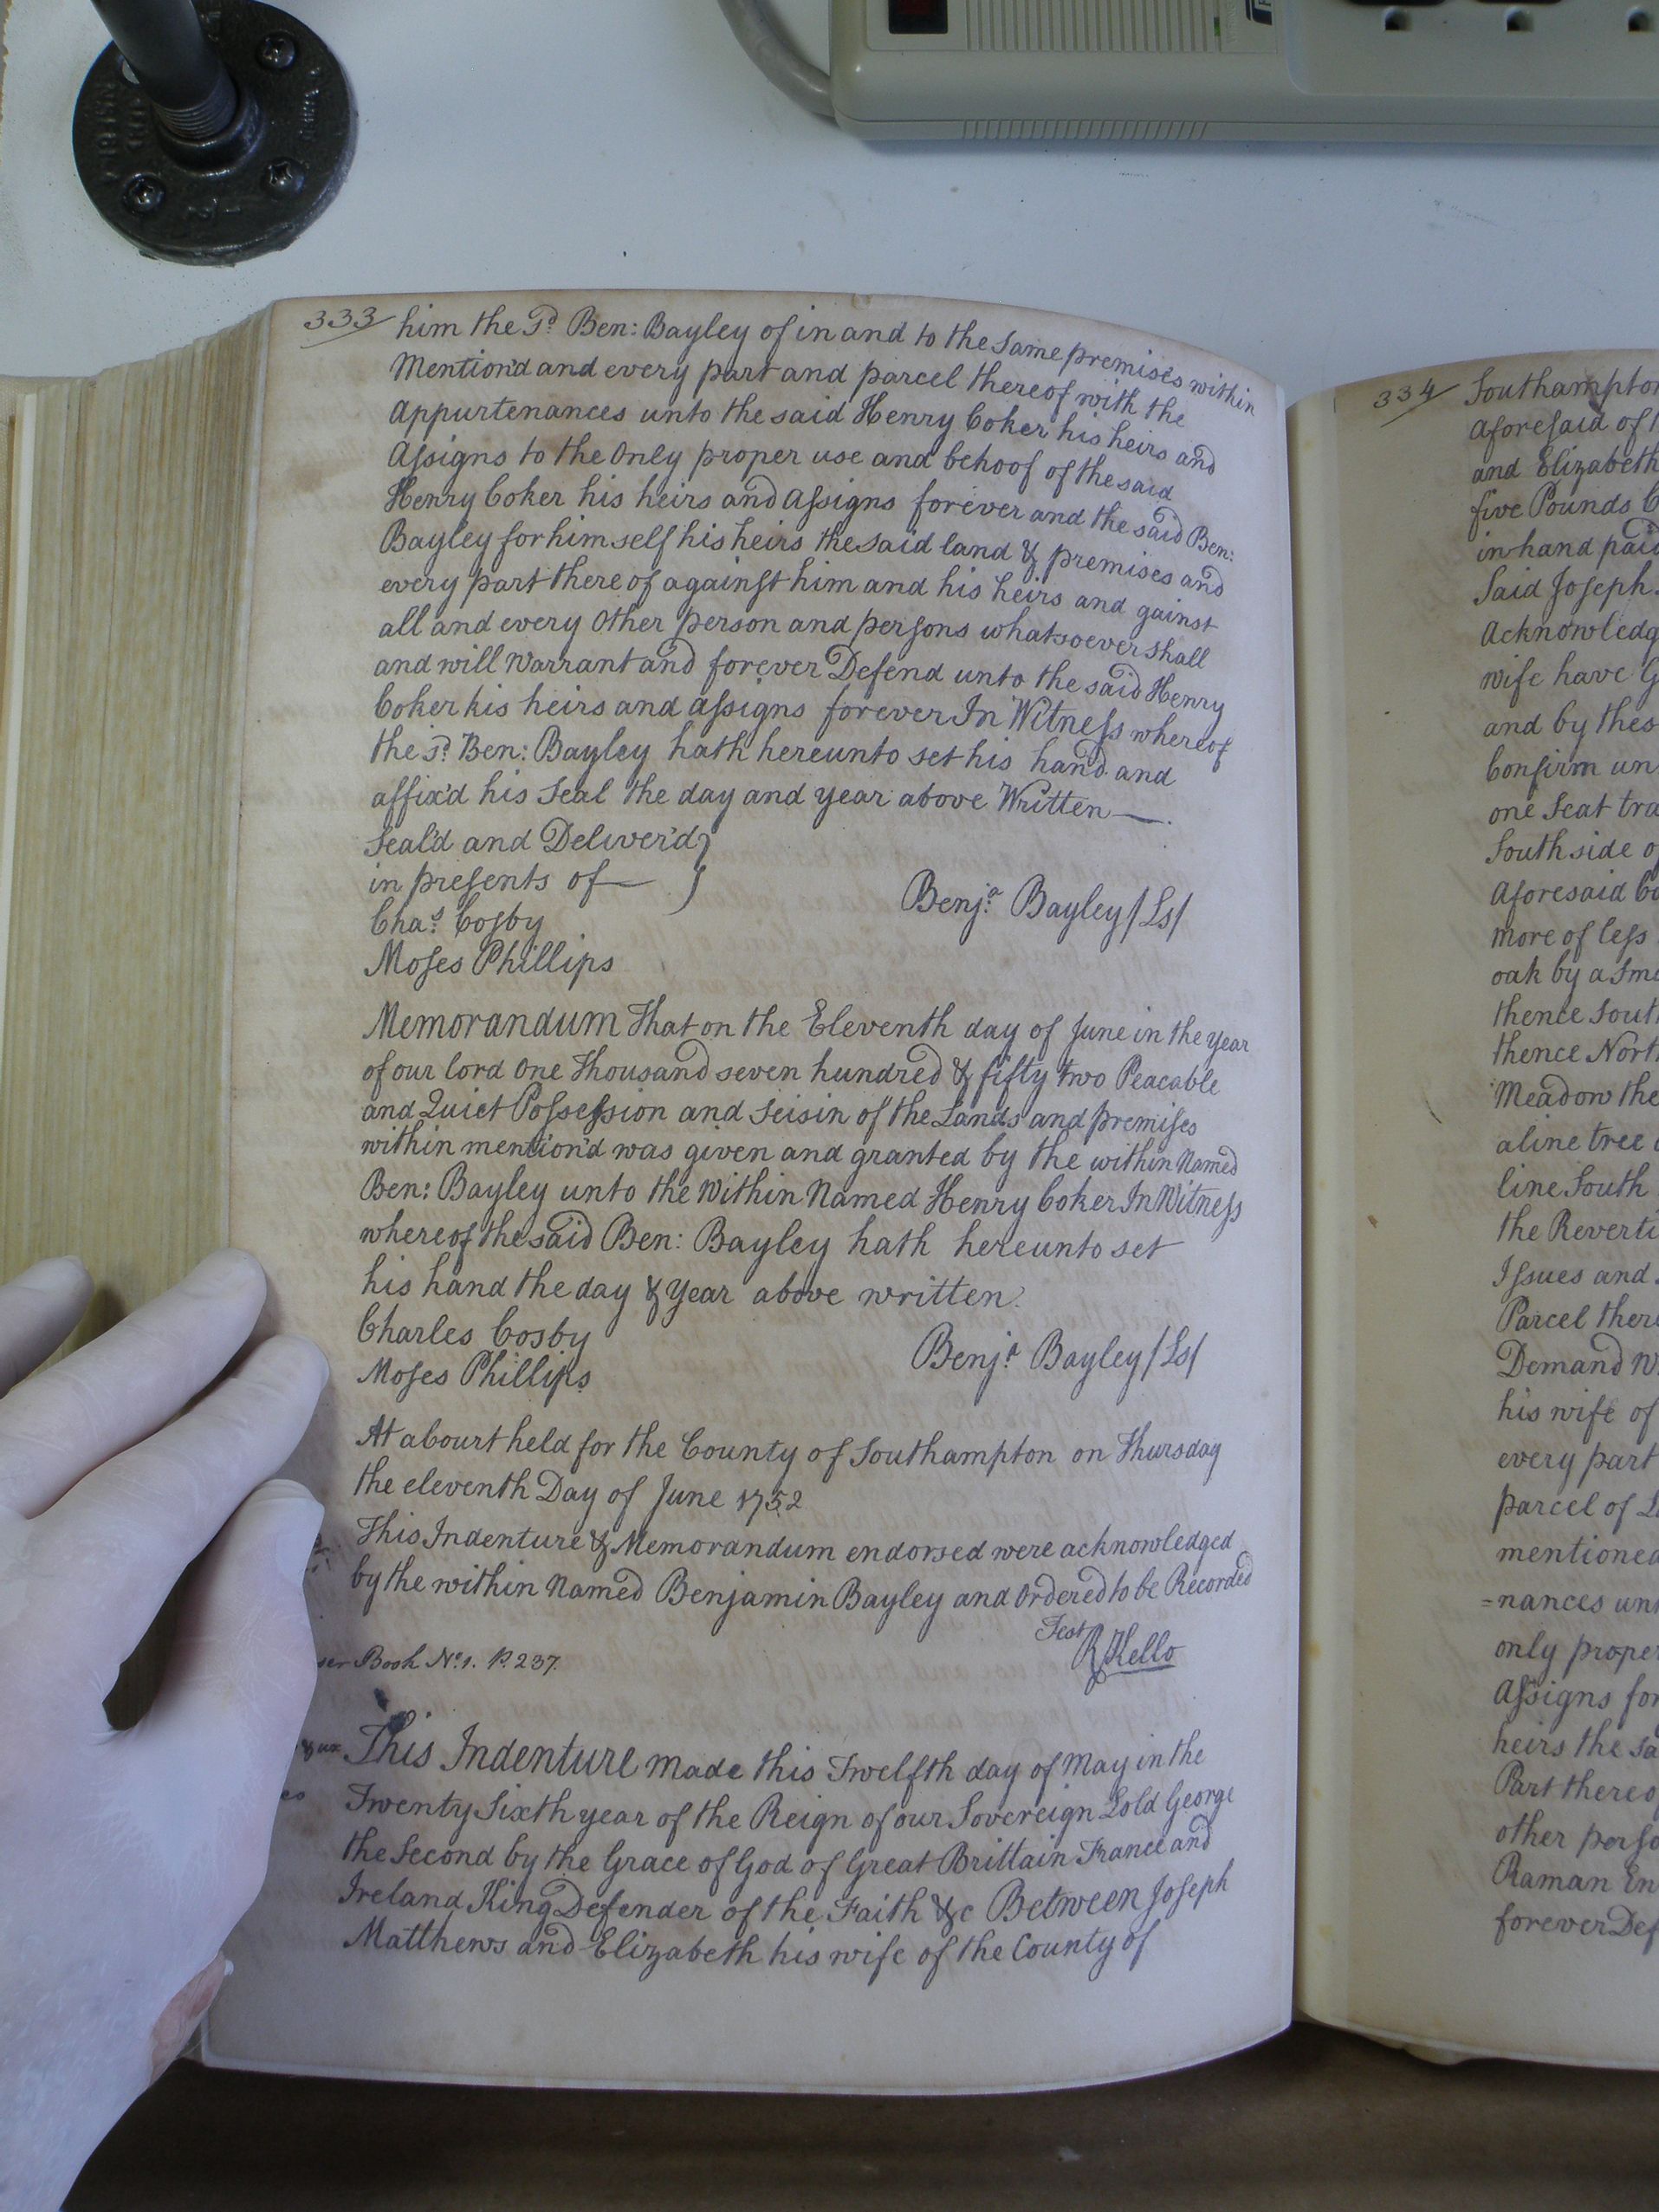 333 him the Sd. Ben: Bayley of in and to the Same premises within
Mention'd and every part and parcel thereof with the
Appurtenances unto the said Henry Coker his heirs and
Assigns to the Only proper use and behoof of the said
Henry Coker his heirs and Assigns forever and the said Ben:
Bayley for himself his heirs the said land & premises and
every part there of against him and his heirs and gainst
all and every Other person and persons whatsoever shall
and will Warrant and forever Defend unto the said Henry
Coker his heirs and assigns forever In Witness whereof
the Sd. Ben: Bayley hath hereunto set his hand and
affix'd his Seal the day and year above Written
Seal'd and Deliver'd
in presents of
Chas. Cosby
Benja. Bayley /Ls/
Moses Phillips
Memorandum That on the Eleventh day of June in the year
of our lord One Thousand seven hundred & fifty two Peacable
and Quiet Possession and Seisin of the Lands and premises
within mention'd was given and granted by the within Named
Ben: Bayley unto the Within Named Henry Coker In Witness
whereof the said Ben: Bayley hath hereunto set
his hand the day & year above written.
Charles Cosby
Benja. Bayley /Ls/
Moses Phillips
At a Court held for the County of Southampton on Thursday
the eleventh Day of June 1752
This Indenture & Memorandum endorsed were acknowledged
by the within Named Benjamin Bayley and Ordered to be Recorded
Test
R Kello
Book No. 1. P. 237.
& ux. This Indenture made this Twelfth day of May in the
Twenty Sixth year of the Reign of our Sovereign Lold George
the Second by the Grace of God of Great Brittain France and
Ireland King Defender of the Faith &c Between Joseph
Matthews and Elizabeth his wife of the County of
334 Southampton
aforesaid of
and Elizabeth
five Pounds
in hand paid
Said Joseph
Acknowledg
wife have
and by thes
Confirm un
one Seat tra
South side o
Aforesaid Co
more of less
oak by a Sma
thence South
thence North
Meadow the
a line tree
line South
the Reverti
Issues and
Parcel there
Demand W
his wife of
every part
parcel of L
mentioned
=nances un
only proper
Assigns for
heirs the sa
Part thereof
other perso
Raman En
forever Def